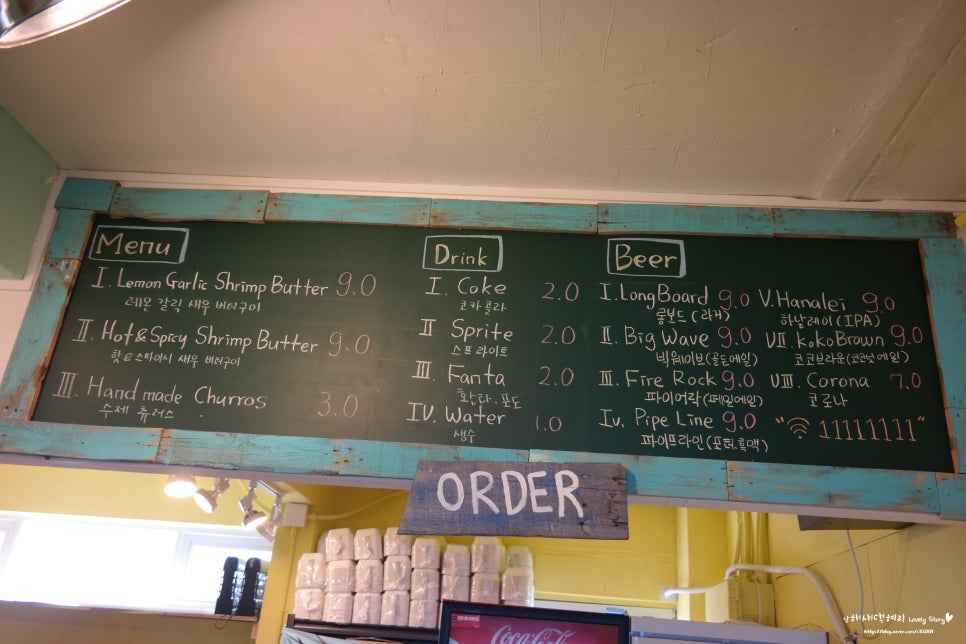 Menu
I. Lemon Garlic Shrimp Butter 9.0
레몬 갈릭 새우 버터구이
II. Hot & Spicy Shrimp Butter 9.0
핫 & 스파이시 새우 버터구이
III. Hand made Churros 3.0
수제 츄러스
Drink
I. Coke 2.0
코카콜라
II Sprite 2.0
스프라이트
III. Fanta 2.0
환타. 포도
IV. Water 1.0
생수
Beer
I. Long Board 9.0
롱보드 (라거)
II. Big Wave 9.0
빅웨이브(골든에일)
III. Fire Rock 9.0
파이어락(페일에일)
Iv. Pipe Line 9.0
파이프라인(포터.흑맥)
V. Hanalei 9.0
하날레이(IPA)
VII. Koko Brown 9.0
코코브라운(코코넛에일)
VIII. Corona 7.0
코로나
"11111111"
ORDER
Coca-Cola
Lovely Story♥